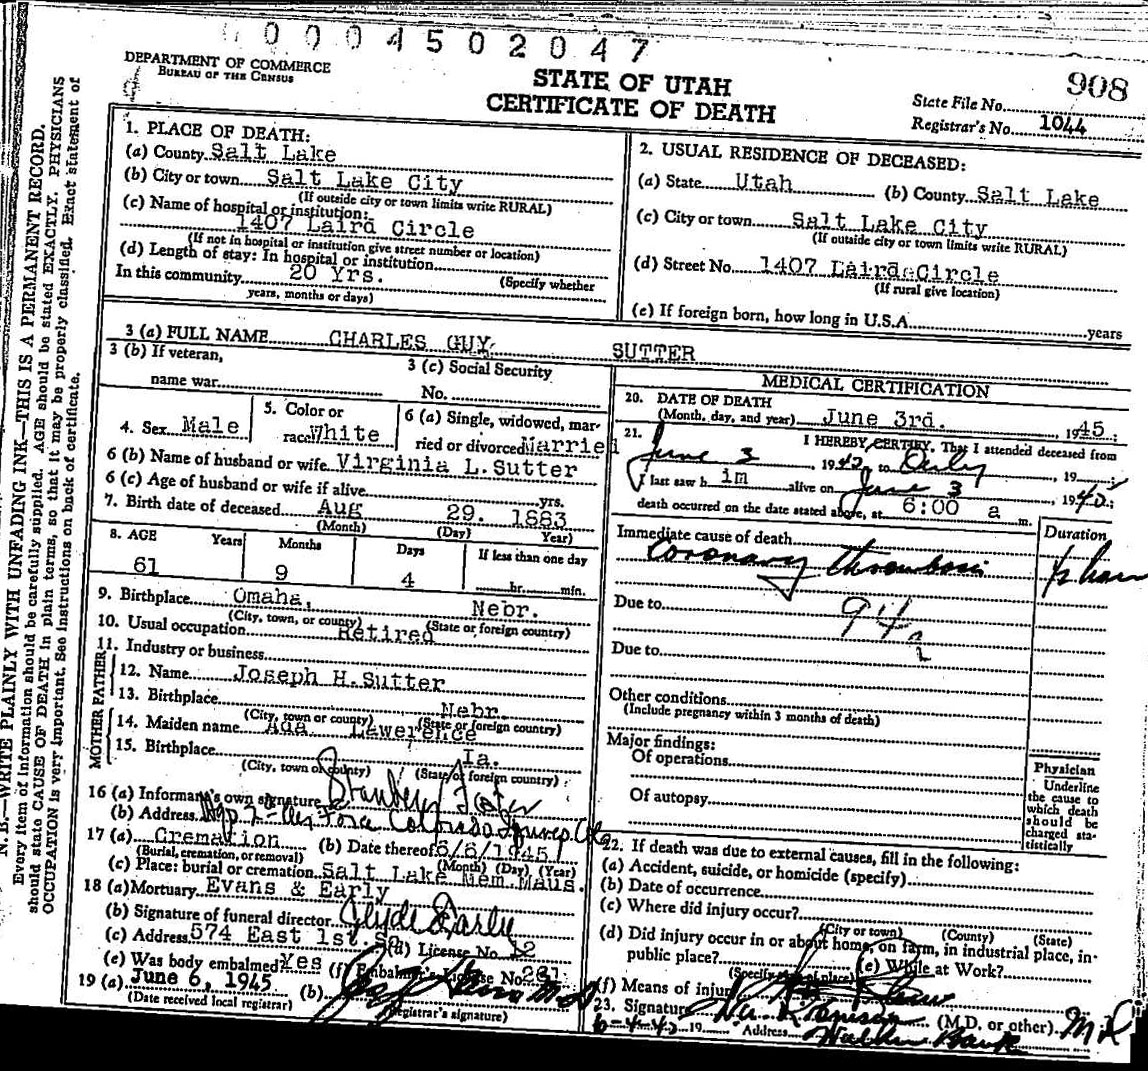 0004502047
DEPARTMENT OF COMMERCE
BUREAU OF THE CENSUS
STATE OF UTAH
CERTIFICATE OF DEATH
908
State File No.
Registrar's No. 1044
N. B.—WRITE PLAINLY WITH UNFADING INK—THIS IS A PERMANENT RECORD.
Every item of information should be carefully supplied. AGE should be stated EXACTLY. PHYSICIANS
should state CAUSE OF DEATH in plain terms, so that it may be properly classified. Exact statement of
OCCUPATION is very important. See instructions on back of certificate.
1. PLACE OF DEATH:
(a) County Salt Lake
(b) City or town Salt Lake City
(If outside city or town limits write RURAL)
(c) Name of hospital or institution:
1407 Laird Circle
(If not in hospital or institution give street number or location)
(d) Length of stay: In hospital or institution
In this community 20 Yrs. (Specify whether
years, months or days)
2. USUAL RESIDENCE OF DECEASED:
(a) State Utah (b) County Salt Lake
(c) City or town Salt Lake City
(If outside city or town limits write RURAL)
(d) Street No. 1407 Laird Circle
(If rural give location)
(e) If foreign born, how long in U.S.A. years
3 (a) FULL NAME CHARLES GUY SUTTER
3 (b) If veteran,
name war
3 (c) Social Security
No.
4. Sex Male
5. Color or
race White
6 (a) Single, widowed, mar-
ried or divorced Married
6 (b) Name of husband or wife Virginia L. Sutter
6 (c) Age of husband or wife if alive yrs.
7. Birth date of deceased Aug 29. 1883
(Month) (Day) (Year)
8. AGE Years Months Days If less than one day
61 9 4 hr. min.
9. Birthplace Omaha, Nebr.
(City, town, or county) (State or foreign country)
10. Usual occupation Retired
11. Industry or business
FATHER
12. Name Joseph H. Sutter
13. Birthplace Nebr.
(City, town or county) (State or foreign country)
MOTHER
14. Maiden name Ada Lawerence
15. Birthplace Ia.
(City, town or county) (State or foreign country)
16 (a) Informant's own signature
(b) Address Air Force Colorado Springs Colo
17 (a) Cremation (b) Date thereof 6/6/1945
(Burial, cremation, or removal) (Month) (Day) (Year)
(c) Place: burial or cremation Salt Lake Mem. Maus.
18 (a) Mortuary Evans & Early
(b) Signature of funeral director Clyde Early
(c) Address 574 East 1st. So (d) License No. 12
(e) Was body embalmed Yes (f) Embalmer's License No. 281
19 (a) June 6, 1945 (b)
(Date received local registrar) (Registrar's signature)
MEDICAL CERTIFICATION
20. DATE OF DEATH
(Month, day, and year) June 3rd. 1945
21. I HEREBY CERTIFY, That I attended deceased from
June 3, 1942 to , 19
I last saw him alive on June 3 1945;
death occurred on the date stated above, at 6:00 a m.
Immediate cause of death Duration
Coronary thrombosis
Due to 94a
Due to
Other conditions
(Include pregnancy within 3 months of death)
Major findings:
Of operations
Of autopsy
Physician
Underline
the cause to
which death
should be
charged sta-
tistically
22. If death was due to external causes, fill in the following:
(a) Accident, suicide, or homicide (specify)
(b) Date of occurrence
(c) Where did injury occur?
(City or town) (County) (State)
(d) Did injury occur in or about home, on farm, in industrial place, in-
public place?
(Specify type of place) (e) While at Work?
(f) Means of injury
23. Signature (M.D. or other) M D
19 Address Walker Bank